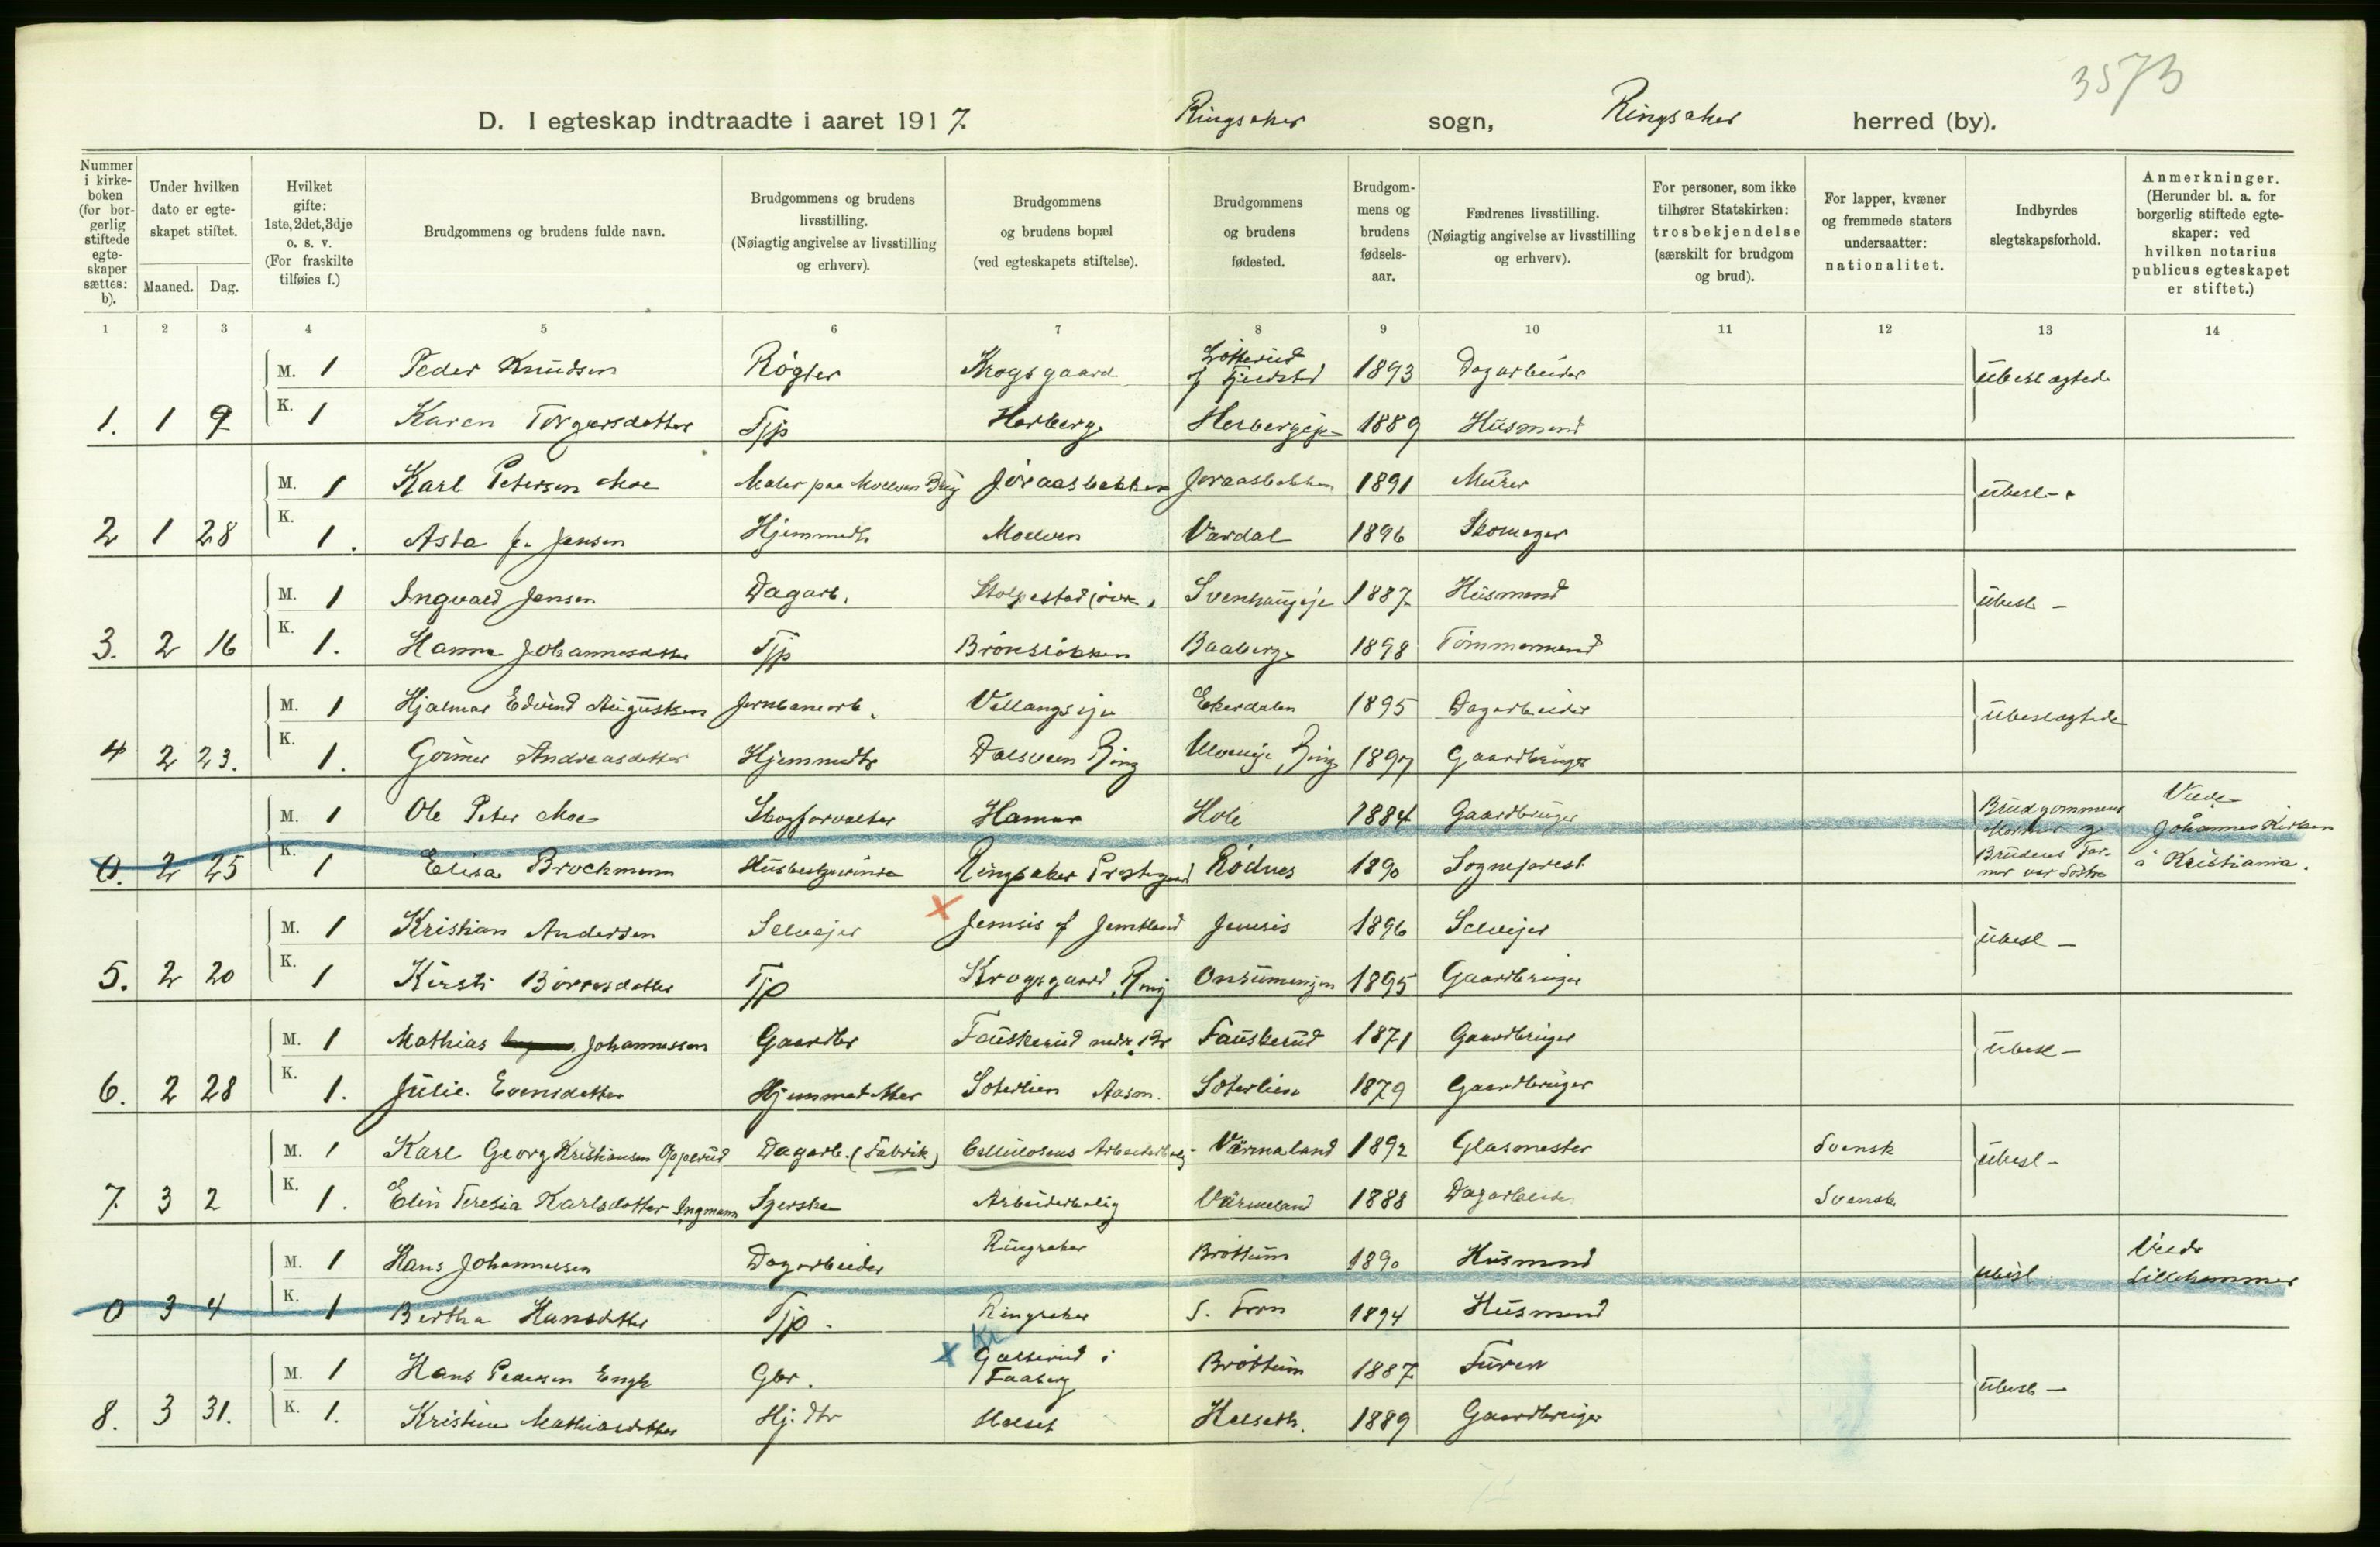 3573
D. I egteskap indtraadte i aaret 1917. Ringsaker sogn, Ringsaker herred (by).
Nummer i kirke-boken (for bor-gerlig stiftede egte-skaper sættes: b).
Under hvilken dato er egte-skapet stiftet.
Maaned. Dag.
Hvilket gifte: 1ste, 2det, 3dje o. s. v. (For fraskilte tilføies f.)
Brudgommens og brudens fulde navn.
Brudgommens og brudens livsstilling. (Nøiagtig angivelse av livsstilling og erhverv).
Brudgommens og brudens bopæl (ved egteskapets stiftelse).
Brudgommens og brudens fødested.
Brudgom-mens og brudens fødsels-aar.
Fædrenes livsstilling. (Nøiagtig angivelse av livsstilling og erhverv).
For personer, som ikke tilhører Statskirken: trosbekjendelse (særskilt for brudgom og brud).
For lapper, kvæner og fremmede staters undersaatter: nationalitet.
Indbyrdes slegtskapsforhold.
Anmerkninger. (Herunder bl. a. for borgerlig stiftede egte-skaper: ved hvilken notarius publicus egteskapet er stiftet.)
1 2 3 4 5 6 7 8 9 10 11 12 13 14
M. 1 Peder Knudsen Røgter Krogsgaard 1893 Dagarbeider ubeslægtede
1. 1 9 K. 1 Karen Torgersdatter Tjp Herberg Herbergeje 1889 Husmand
M. 1 Karl Petersen Moe Maler paa Moelven Brug Joraasbakken Joraasbakken 1891 Murer ubesl-
2 1 28 K. 1. Asta f. Jensen Hjemmedtr Moelven Vardal 1896 Skomager
M. 1 Ingvald Jensen Dagarb. Stolpestad Svenhaugeje 1887 Husmand ubesl -
3. 2 16 K. 1. Hanna Johannesdatter Tjp Brønsløkken Baaberg 1898 Tømmermand
M. 1 Hjalmar Edvind Augustsen Jernbanearb. Vellangseje Ekerdalen 1895 Dagarbeider ubeslægtede
4 2 23. K. 1. Andreasdatter Hjemmedtr Dalsveen Ring 1897 Gaardbruger
M. 1 Ole Peter Moe Skogforvalter Hamar Hole 1884 Gaardbruger Brudgommens Viede
Johannes Kirken
0. 2 25 K. 1 Elisa Brochmann Husbestyrerinde Ringsaker Prestegaard Rødnes 1890 Sogneprest Brudens Far- i Kristiania.
mor var Søstre
M. 1 Kristian Andersen Selvejer X Jemsis Jemtland Jemsis 1896 Selvejer ubesl -
5. 2 20 K. 1 Kirsti Børresdatter Tjp Krogsgaard, Ring 1895 Gaardbruger
M. 1 Mathias Johannessen Gaardbr Fauskerud Fauskerud 1871 Gaardbruger ubesl -
6. 2 28 K. 1. Julie Evensdatter Hjemmedatter Soterlien Aasm. Soterlien 1879 Gaardbruger
M. 1 Karl Georg Kristiansen Opperud Dagarb. (Fabrik) Cellulosens Arbeiderbolig Värmaland 1892 Glasmester Svensk ubesl -
7. 3 2 K. 1. Elin Teresia Karlsdotter Ingmann Syerske Arbeiderbolig Värmeland 1888 Dagarbeider Svensk
M. 1 Hans Johannessen Dagarbeider Ringsaker Brøttum 1890 Husmand ubesl. Viede
Lillehammer
0 3 4 K. 1 Bertha Hansdatter Tjp. Ringsaker S. Fron 1894 Husmand
M. 1 Hans Pedersen Engh Gbr. X Galterud i Faaberg Brøttum 1887 ubesl -
8. 3 31. K. 1. Kristine Mathiasdatter Hj. dtr Holset Helseth. 1889 Gaardbruger